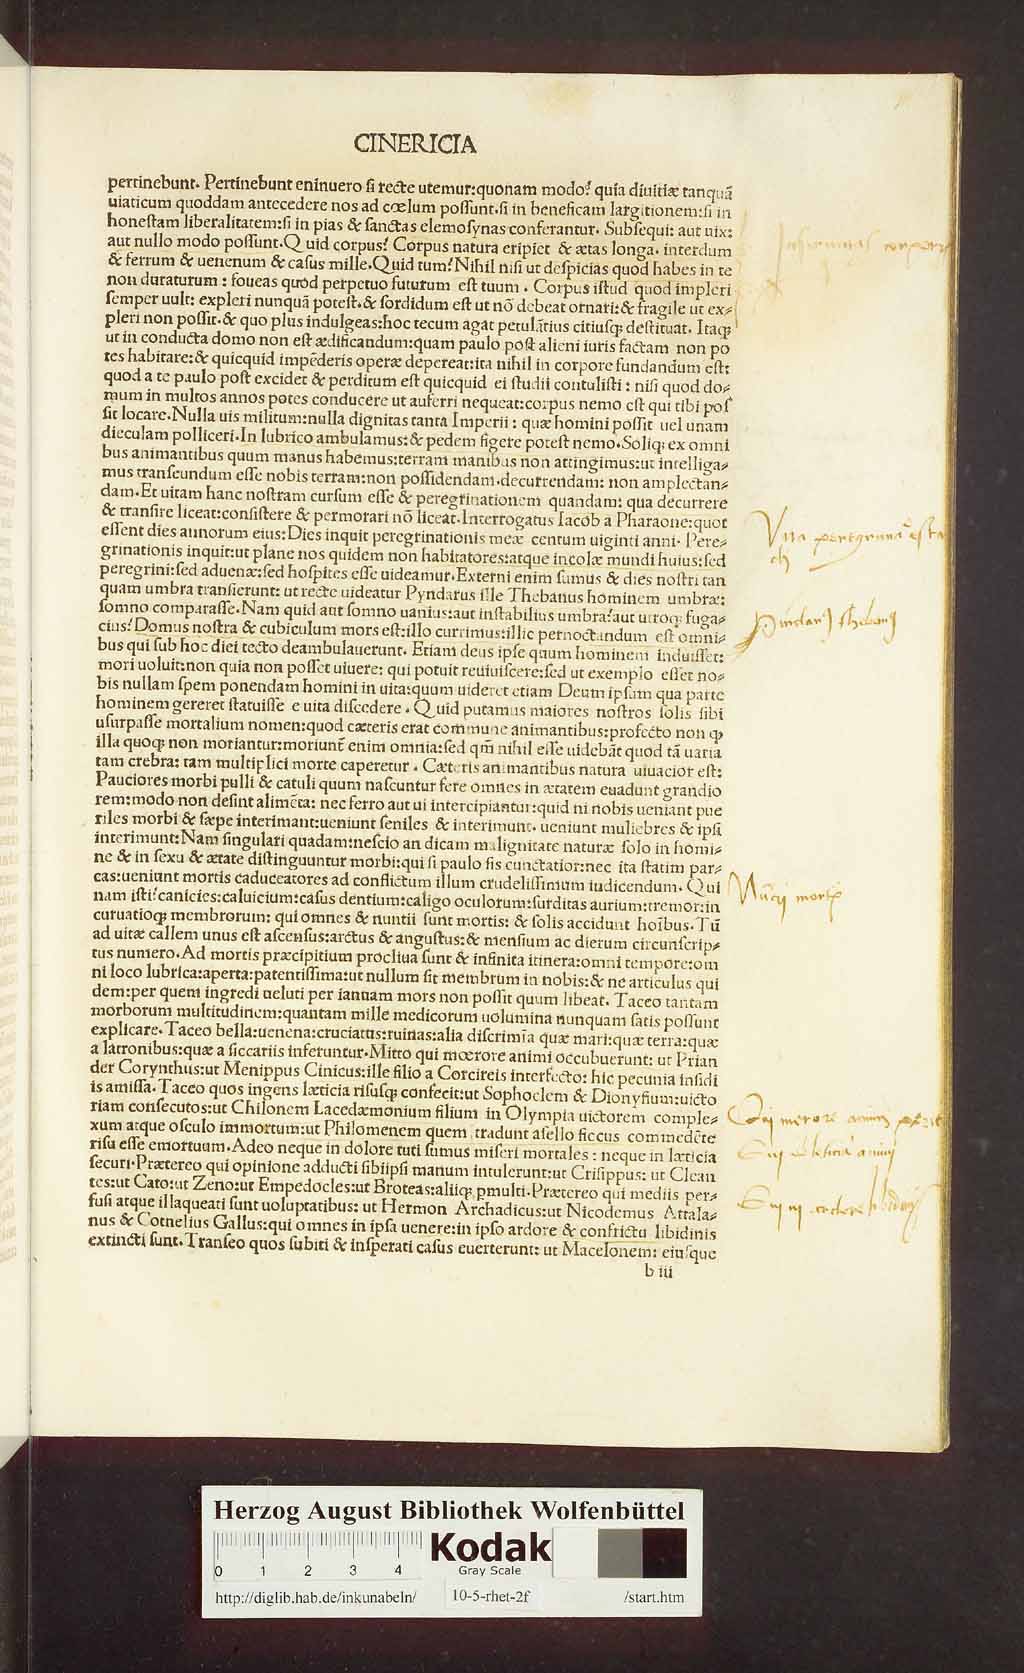 CINERICIA
pertinebunt. Pertinebunt eninuero ſi recte utemur:quonam modo? quia diuitiæ tanquã
uiaticum quoddam antecedere nos ad cœlum poſſunt.ſi in beneficam largitionem:ſi in
honeſtam liberalitatem:ſi in pias & ſanctas elemoſynas conferantur. Subſequi: aut uix:
aut nullo modo poſſunt.Quid corpus? Corpus natura eripiet & ætas longa. interdum
& ferrum & uenenum & caſus mille.Quid tum? Nihil niſi ut deſpicias quod habes in te
non duraturum : foueas quod perpetuo futurum eſt tuum . Corpus iſtud quod impleri
ſemper uult: expleri nunquã poteſt.& ſordidum eſt ut nõ debeat ornari:& fragile ut ex-
pleri non poſſit.& quo plus indulgeas:hoc tecum agat petulãtius citiuſq; deſtituat. Itaq;
ut in conducta domo non eſt ædificandum:quam paulo poſt alieni iuris factam non po
tes habitare:& quicquid impẽderis operæ depereat:ita nihil in corpore fundandum eſt:
quod a te paulo poſt excidet & perditum eſt quicquid ei ſtudii contuliſti : niſi quod do-
mum in multos annos potes conducere ut auferri nequeat:corpus nemo eſt qui tibi poſ
ſit locare.Nulla uis militum:nulla dignitas tanta Imperii : quæ homini poſſit uel unam
dieculam polliceri.In lubrico ambulamus:& pedem figere poteſt nemo.Soliq; ex omni
bus animantibus quum manus habemus:terram manibus non attingimus:ut intelliga-
mus tranſeundum eſſe nobis terram:non poſſidendam.decurrendam: non amplectan-
dam.Et uitam hanc noſtram curſum eſſe & peregrinationem quandam: qua decurrere
& tranſire liceat:conſiſtere & permorari nõ liceat.Interrogatus Iacob a Pharaone:quot
eſſent dies annorum eius:Dies inquit peregrinationis meæ centum uiginti anni. Pere-
grinationis inquit:ut plane nos quidem non habitatores:atque incolæ mundi huius:ſed
peregrini:ſed aduenæ:ſed hoſpites eſſe uideamur.Externi enim ſumus & dies noſtri tan
quam umbra tranſierunt: ut recte uideatur Pyndarus ille Thebanus hominem umbræ:
ſomno comparaſſe.Nam quid aut ſomno uanius:aut inſtabilius umbra?aut utroq; fuga-
cius?Domus noſtra & cubiculum mors eſt:illo currimus:illic pernoctandum eſt omni-
bus qui ſub hoc diei tecto deambulauerunt. Etiam deus ipſe quum hominem induiſſet:
mori uoluit:non quia non poſſet uiuere: qui potuit reuiuiſcere:ſed ut exemplo eſſet no-
bis nullam ſpem ponendam homini in uita:quum uideret etiam Deum ipſum qua parte
hominem gereret ſtatuiſſe e uita diſcedere . Quid putamus maiores noſtros ſolis ſibi
uſurpaſſe mortalium nomen:quod cæteris erat commune animantibus:profecto non q
illa quoq; non moriantur:moriunt̃ enim omnia:ſed qm̃ nihil eſſe uidebãt quod tã uaria
tam crebra: tam multiplici morte caperetur . Cæteris animantibus natura uiuacior eſt:
Pauciores morbi pulli & catuli quum naſcuntur fere omnes in ætatem euadunt grandio
rem:modo non deſint alimẽta: nec ferro aut ui intercipiantur:quid ni nobis ueniant pue
riles morbi & ſæpe interimant:ueniunt ſeniles & interimunt. ueniunt muliebres & ipſi
interimunt:Nam ſingulari quadam:neſcio an dicam malignitate naturæ ſolo in homi-
ne & in ſexu & ætate diſtinguuntur morbi:qui ſi paulo ſis cunctatior:nec ita ſtatim par-
cas:ueniunt mortis caduceatores ad conflictum illum crudeliſſimum iudicendum. Qui
nam iſti?canicies:caluicium:caſus dentium:caligo oculorum:ſurditas aurium:tremor:in
curuatioq; membrorum: qui omnes & nuntii ſunt mortis: & ſolis accidunt hoĩbus.Tũ
ad uitæ callem unus eſt aſcenſus:arctus & anguſtus:& menſium ac dierum circunſcrip-
tus numero.Ad mortis præcipitium procliua ſunt & infinita itinera:omni tempore:om
ni loco lubrica:aperta:patentiſſima:ut nullum ſit membrum in nobis:& ne articulus qui
dem:per quem ingredi ueluti per ianuam mors non poſſit quum libeat. Taceo tantam
morborum multitudinem:quantam mille medicorum uolumina nunquam ſatis poſſunt
explicare.Taceo bella:uenena:cruciatus:ruinas:alia diſcrimĩa quæ mari:quæ terra:quæ
a latronibus:quæ a ſiccariis inferuntur.Mitto qui mœrore animi occubuerunt: ut Prian
der Corynthus:ut Menippus Cinicus:ille filio a Corcireis interfecto: hic pecunia inſidi
is amiſſa.Taceo quos ingens læticia riſuſq; confecit:ut Sophoclem & Dionyſium:uicto
riam conſecutos:ut Chilonem Lacedæmonium filium in Olympia uictorem comple-
xum atque oſculo immortum:ut Philomenem quem tradunt aſello ficcus commedẽte
riſu eſſe emortuum.Adeo neque in dolore tuti ſumus miſeri mortales : neque in læticia
ſecuri.Prætereo qui opinione adducti ſibiipſi manum intulerunt:ut Criſippus: ut Clean
tes:ut Cato:ut Zeno:ut Empedocles:ut Broteas:aliiq; pmulti.Prætereo qui mediis per-
fuſi atque illaqueati ſunt uoluptatibus: ut Hermon Archadicus:ut Nicodemus Attala-
nus & Cornelius Gallus:qui omnes in ipſa uenere:in ipſo ardore & confrictu libidinis
extincti ſunt.Tranſeo quos ſubiti & inſperati caſus euerterunt: ut Macelonem: eiuſque
b iii
Vita peregrina
Nũcij mortis
Qui merore animi
Herzog August Bibliothek Wolfenbüttel
0 1 2 3 4
Kodak
Gray Scale
http://diglib.hab.de/inkunabeln/ 10-5-rhet-2f /start.htm